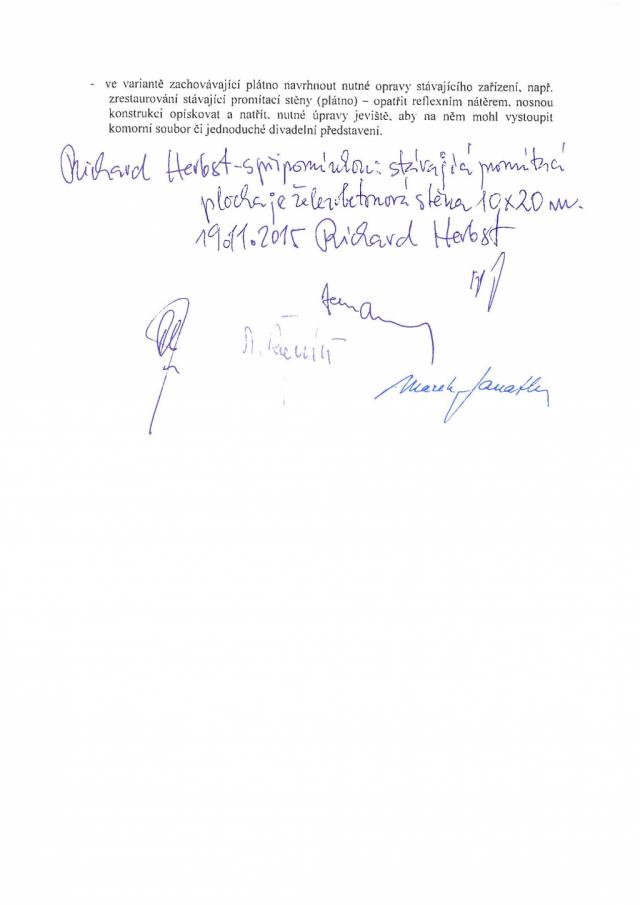 - ve variantě zachovávající plátno navrhnout nutné opravy stávajícího zařízení, např.
zrestaurování stávající promítací stěny (plátno) – opatřit reflexním nátěrem, nosnou
konstrukci opískovat a natřít, nutné úpravy jeviště, aby na něm mohl vystoupit
komorní soubor či jednoduché divadelní představení.
Richard Herbst - s připomínkou: stávající promítací
plocha je železobetonová stěna 10x20 m.
19.11.2015 Richard Herbst
Marek